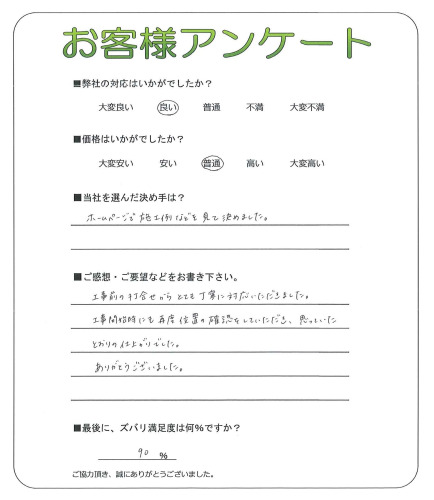 お客様アンケート
■弊社の対応はいかがでしたか？
大変良い 良い 普通 不満 大変不満
■価格はいかがでしたか？
大変安い 安い 普通 高い 大変高い
■当社を選んだ決め手は？
ホームページで施工例などを見て決めました。
■ご感想・ご要望などをお書き下さい。
工事前の打合せからとても丁寧に対応いただきました。
工事開始時にも再度位置の確認をしていただき、思っていた
とおりの仕上がりでした。
ありがとうございました。
■最後に、ズバリ満足度は何%ですか？
90 %
ご協力頂き、誠にありがとうございました。